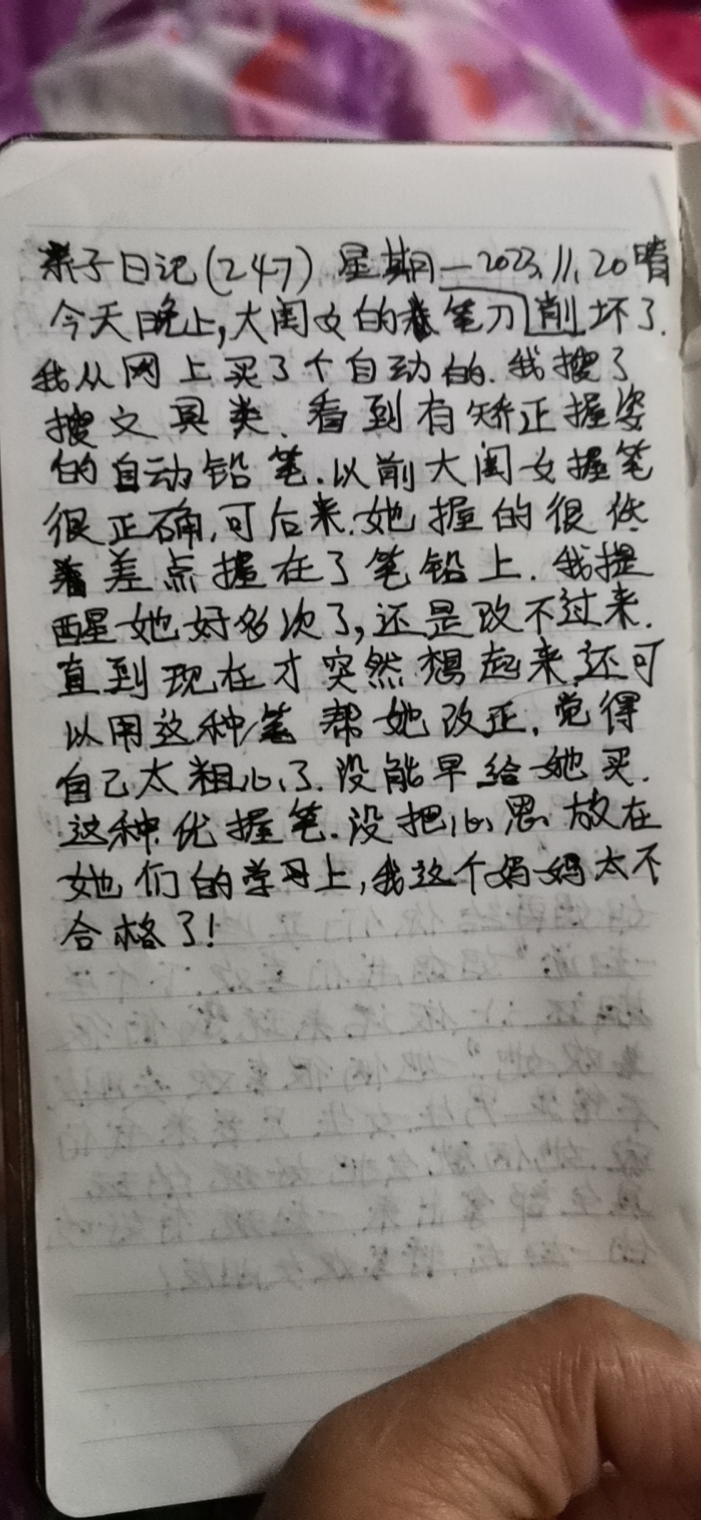 亲子日记(247) 星期一2023.11.20晴
今天晚上,大闺女的卷笔刀削坏了.
我从网上买了个自动的.我搜了
搜文具类、看到有矫正握姿
的自动铅笔.以前大闺女握笔
很正确,可后来.她握的很低
差点握在了笔铅上.我提
醒她好多次了,还是改不过来.
直到现在才突然想起来,还可
以用这种笔帮她改正.觉得
自己太粗心了.没能早给她买.
这种优握笔.没把心思放在
她们的学习上,我这个妈妈太不
合格了!